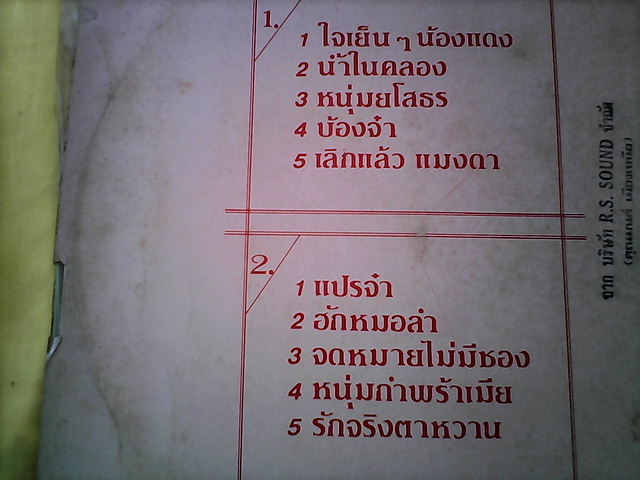 1.
1 ใจเย็น ๆ น้องแดง
2 น้ำในคลอง
3 หนุ่มยโสธร
4 บ้องจ๋า
5 เลิกแล้ว แมงดา
2.
1 แปรจ๋า
2 ฮักหมอลำ
3 จดหมายไม่มีซอง
4 หนุ่มกำพร้าเมีย
5 รักจริงตาหวาน
จาก บริษัท R.S. SOUND จำกัด